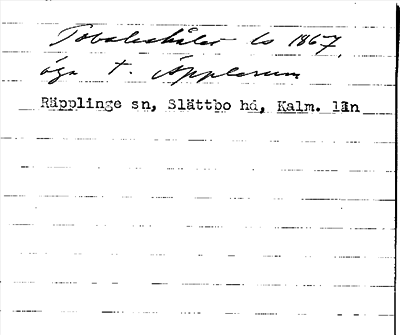 Tobaksskåler ls 1867.
äga t. Äpplerum
Räpplinge sn, Slättbo hd, Kalm. län